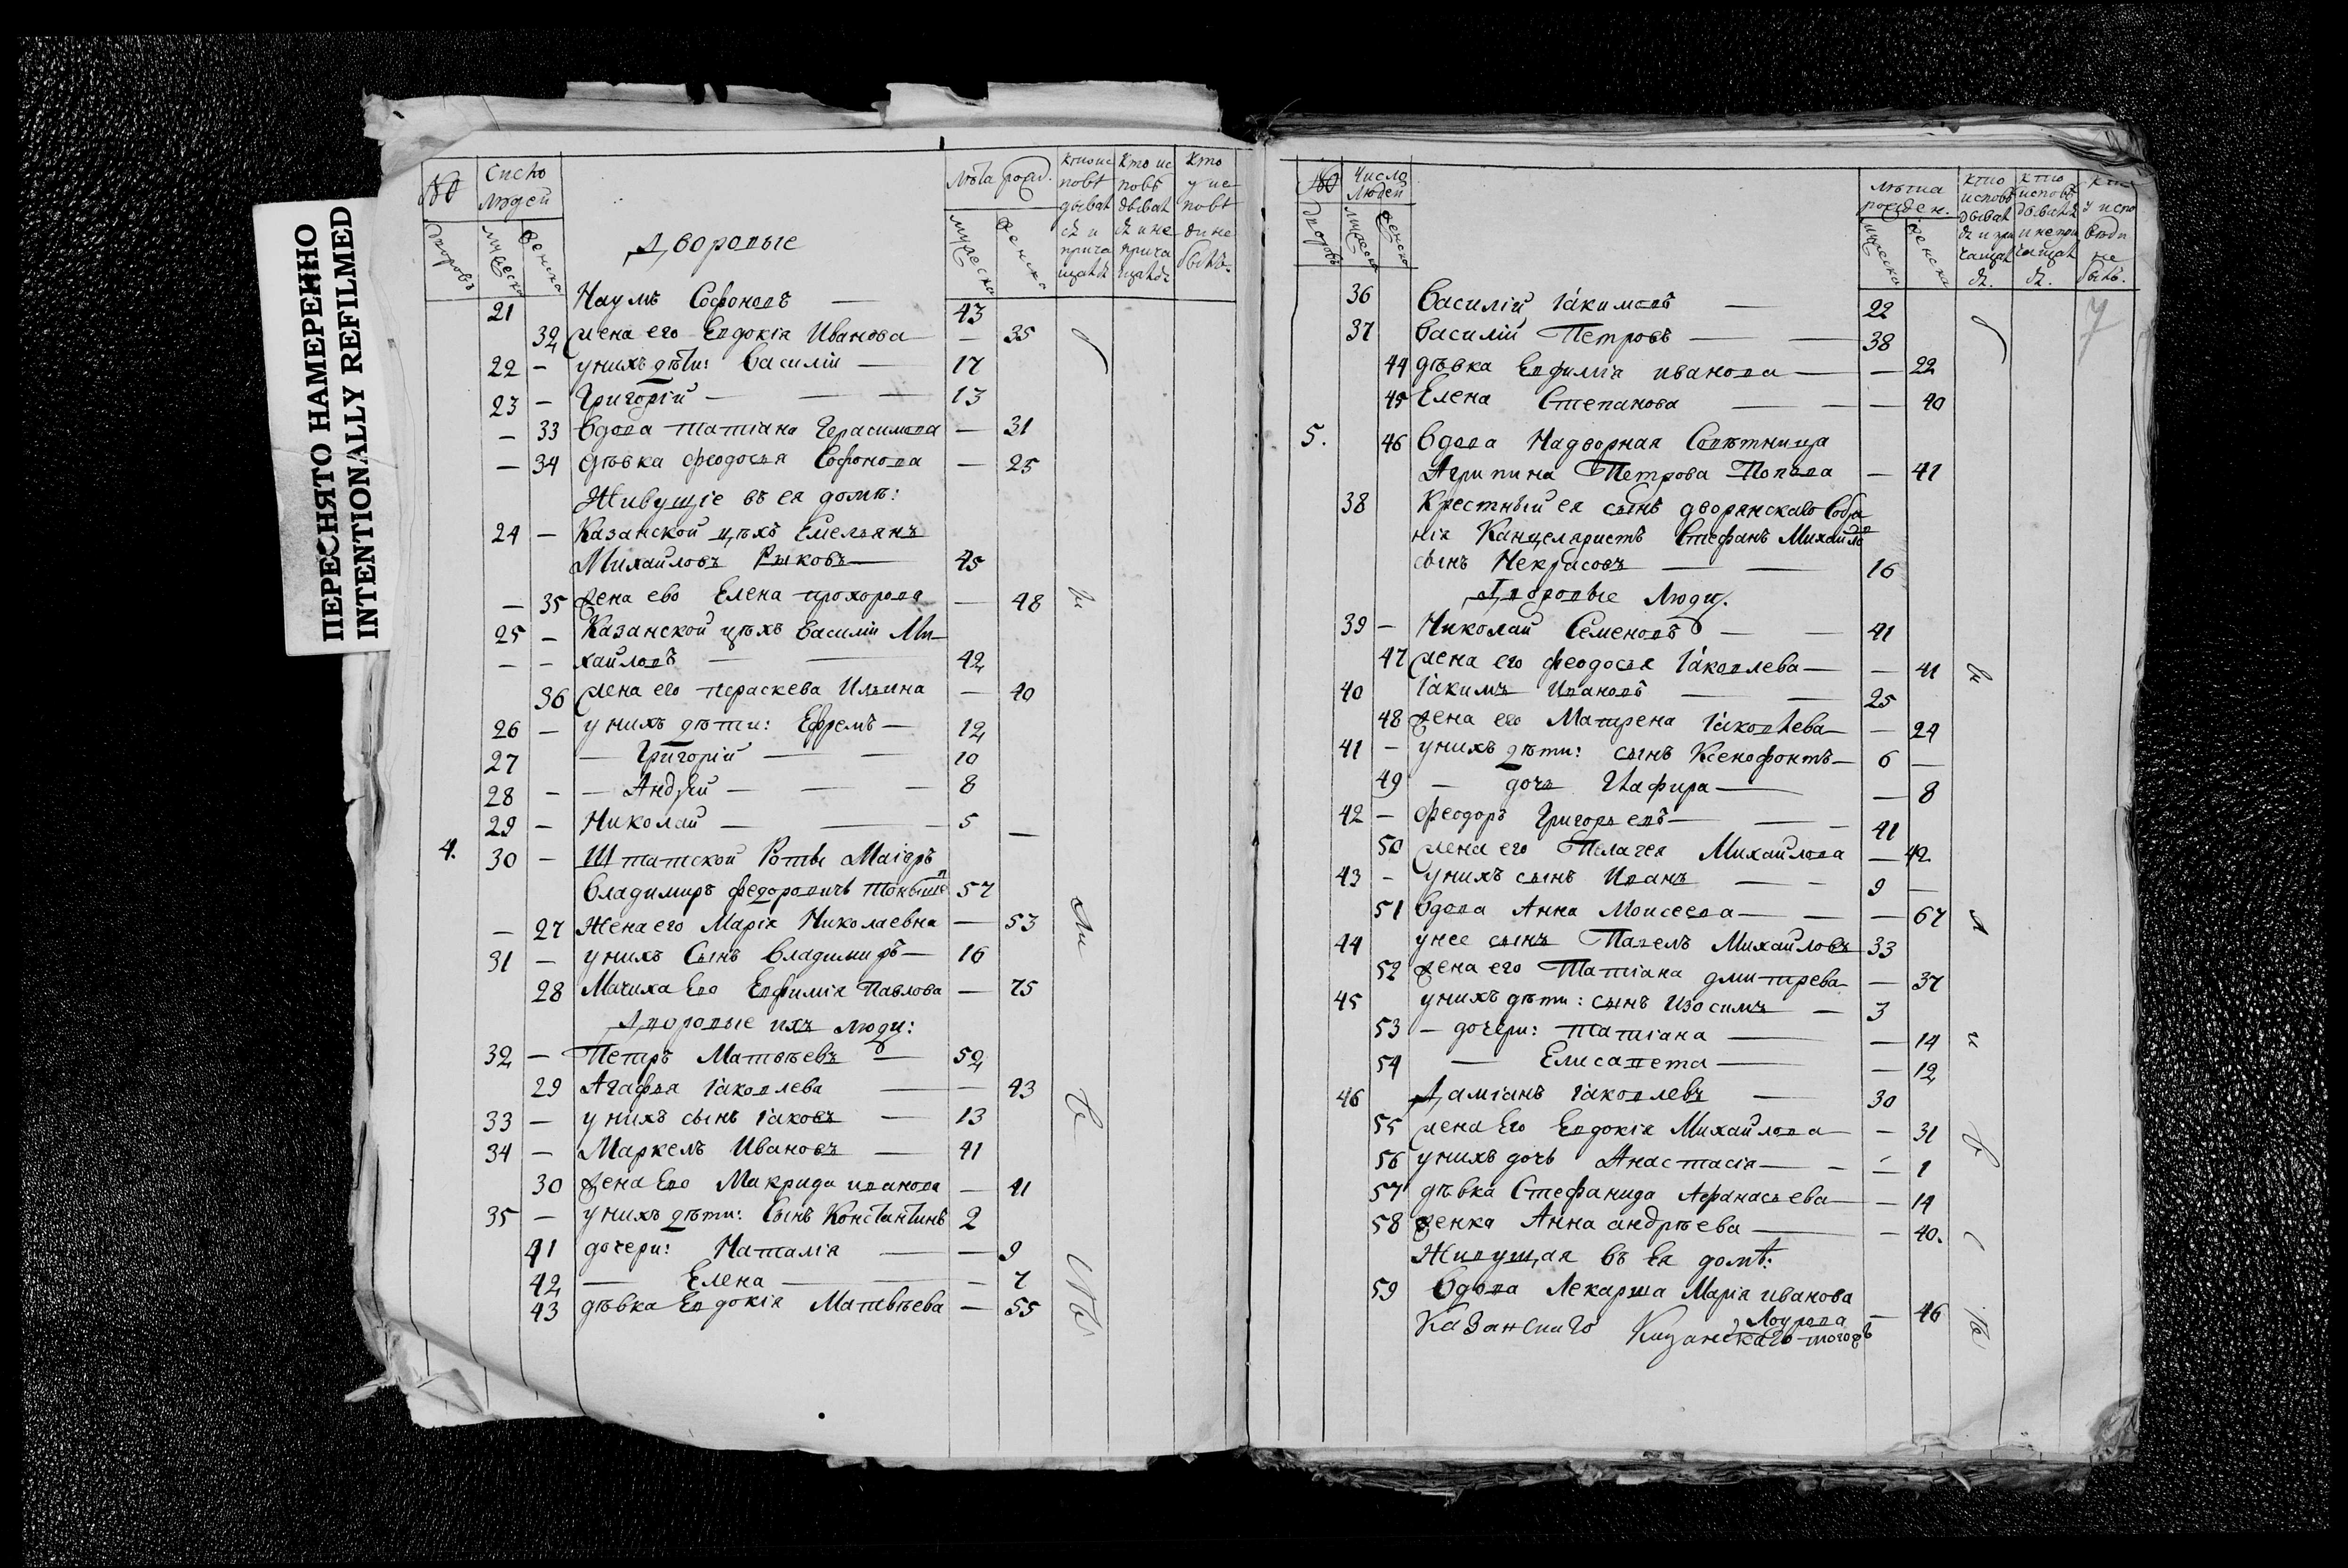 ПЕРЕСНЯТО НАМЕРЕННО
INTENTIONALLY REFILMED
№ Число людей Лѣта рожд. кто испо кто ис кто
дворовъ мужеска женска мужеска женска
Дворовые
21 Наумъ Софоновъ — 43
32 жена его Евдокія Иванова — 35
22 — у нихъ дѣти: Василій — 17
23 — Григорій — — — 13
— 33 вдова Татіана Герасимова — 31
— 34 дѣвка Феодосья Софонова — 25
Живущіе въ ея домѣ:
24 — Казанской цѣхъ Емельянъ
Михайловъ Рыковъ — 45
— 35 жена ево Елена Прохорова — 48
25 — Казанской цѣхъ Василій Ми-
— — хайловъ — — 42
36 жена его Параскева Ильина — 40
26 — у нихъ дѣти: Ефремъ — 12
27 — Григорій — — 10
28 — — Андрей — — — 8
29 — Николай — — 5 —
4. 30 — Штатской Роты Маіоръ
Владимиръ Федоровичъ 57
— 27 Жена его Марія Николаевна — 53
31 — у нихъ Сынъ Владимиръ — 16
28 Мачиха Его Евфимія Павлова — 75
Дворовые ихъ люди:
32 — Петръ Матвѣевъ — 52
29 Агафья Іаковлева — — 43
33 — у нихъ сынъ Іаковъ — 13
34 — Маркелъ Ивановъ — 41
30 жена Его Макрида Иванова — 41
35 — у нихъ дѣти: Сынъ Константинъ 2
41 дочери: Наталія — — 9
42 — Елена — — 7
43 дѣвка Евдокія Матвѣева — 55
№ Число людей лѣта рожден.
дворовъ мужеска женска мужеска женска
7
36 Василій Іакимовъ — 22
37 Василій Петровъ — — 38
44 дѣвка Евфимія Иванова — — 22
45 Елена Степанова — — — 40
5. 46 Вдова Надворная Совѣтница
Агрипина Петрова Попова — 41
38 Крестный ея сынъ дворянскаго Собра
нія Канцеляристъ Стефанъ Михайловъ
сынъ Некрасовъ — — 16
Дворовые Люди.
39 — Николай Семеновъ — — 41
47 жена его Феодосья Іаковлева — — 41
40 Іакимъ Ивановъ — — 25
48 жена его Матрена Іаковлева — — 24
41 — у нихъ дѣти: сынъ Ксенофонтъ — 6 —
49 — дочь — — 8
42 — Феодоръ Григорьевъ — — — 41
50 жена его Пелагея Михайлова — 42
43 — у нихъ сынъ Иванъ — — 9 —
51 вдова Анна Моисеева — — — 67
44 у нее сынъ Павелъ Михайловъ 33
52 жена его Татіана Дмитрева — — 37
45 у нихъ дѣти: сынъ Изосимъ — 3
53 — дочери: Татіана — — 14
54 — Елисавета — — 12
46 Даміанъ Іаковлевъ — 30
55 жена Его Евдокія Михайлова — — 31
56 у нихъ дочь Анастасія — — — 1
57 дѣвка Стефанида Афанасьева — — 14
58 женка Анна Андрѣева — — 40.
Живущая въ Ея домѣ:
59 Вдова Лекарша Марія Иванова
— 46
Казанскаго Казанскаго